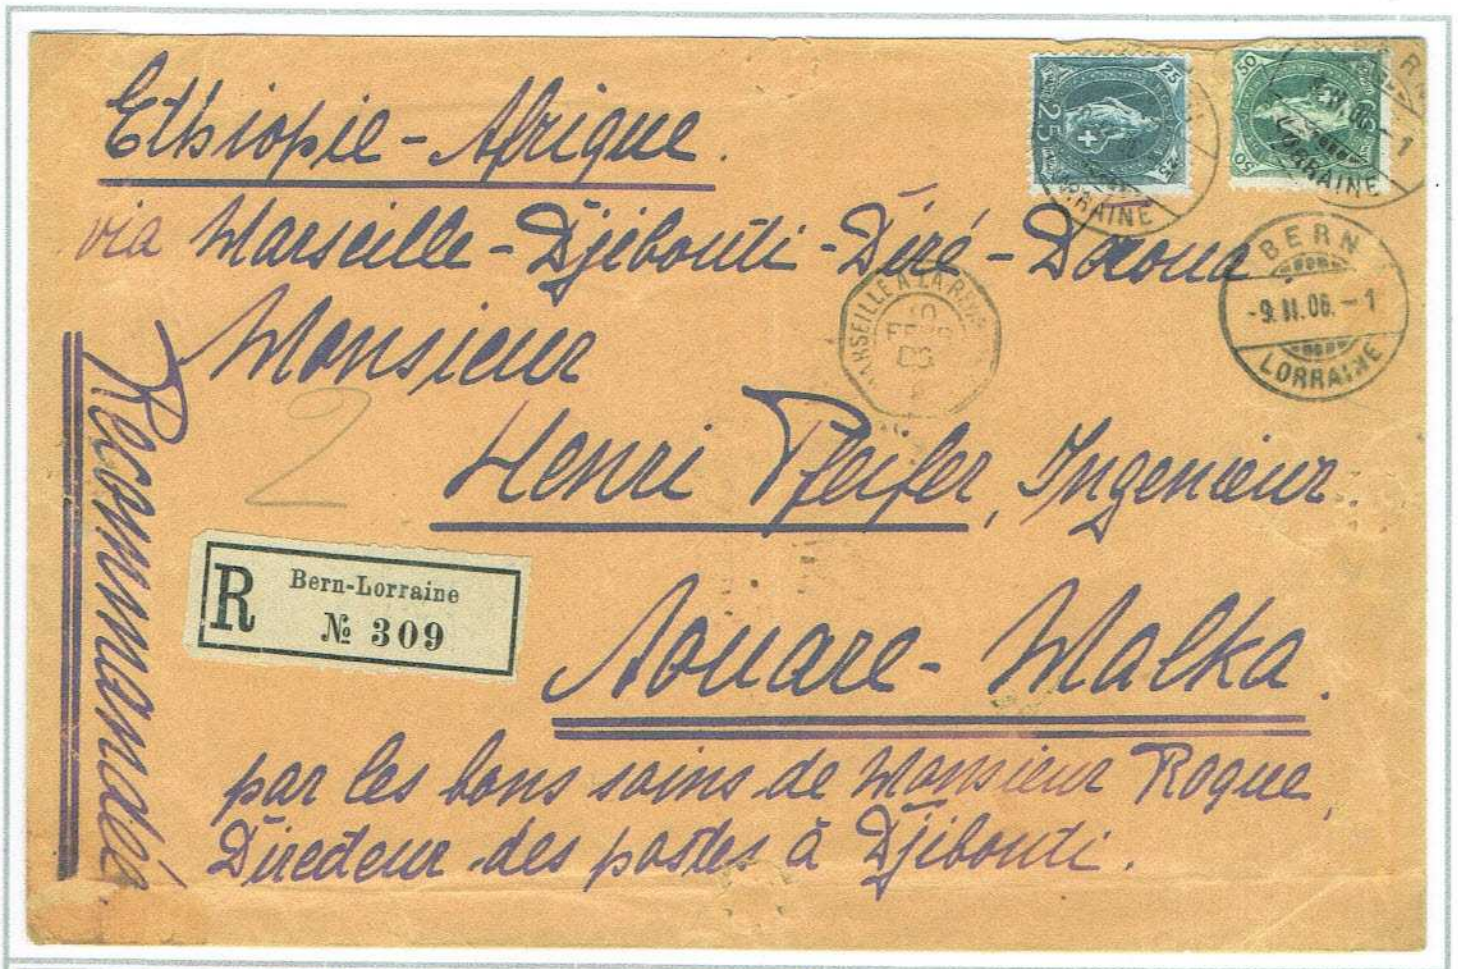 Ethiopie - Afrique.
via Marseille - Djibouti - Diré - Daoua,
Monsieur
Henri Pfeifer, Ingenieur.
Aouare - Malka.
par les bons soins de Monsieur Roque,
Directeur des postes à Djibouti.
Recommandée
2
R
Bern-Lorraine
№ 309
25
25
25
50
50
LORRAINE
LORRAINE
1
BERN
-9.II.06.-1
LORRAINE
MARSEILLE A LA
10
FEVR
06